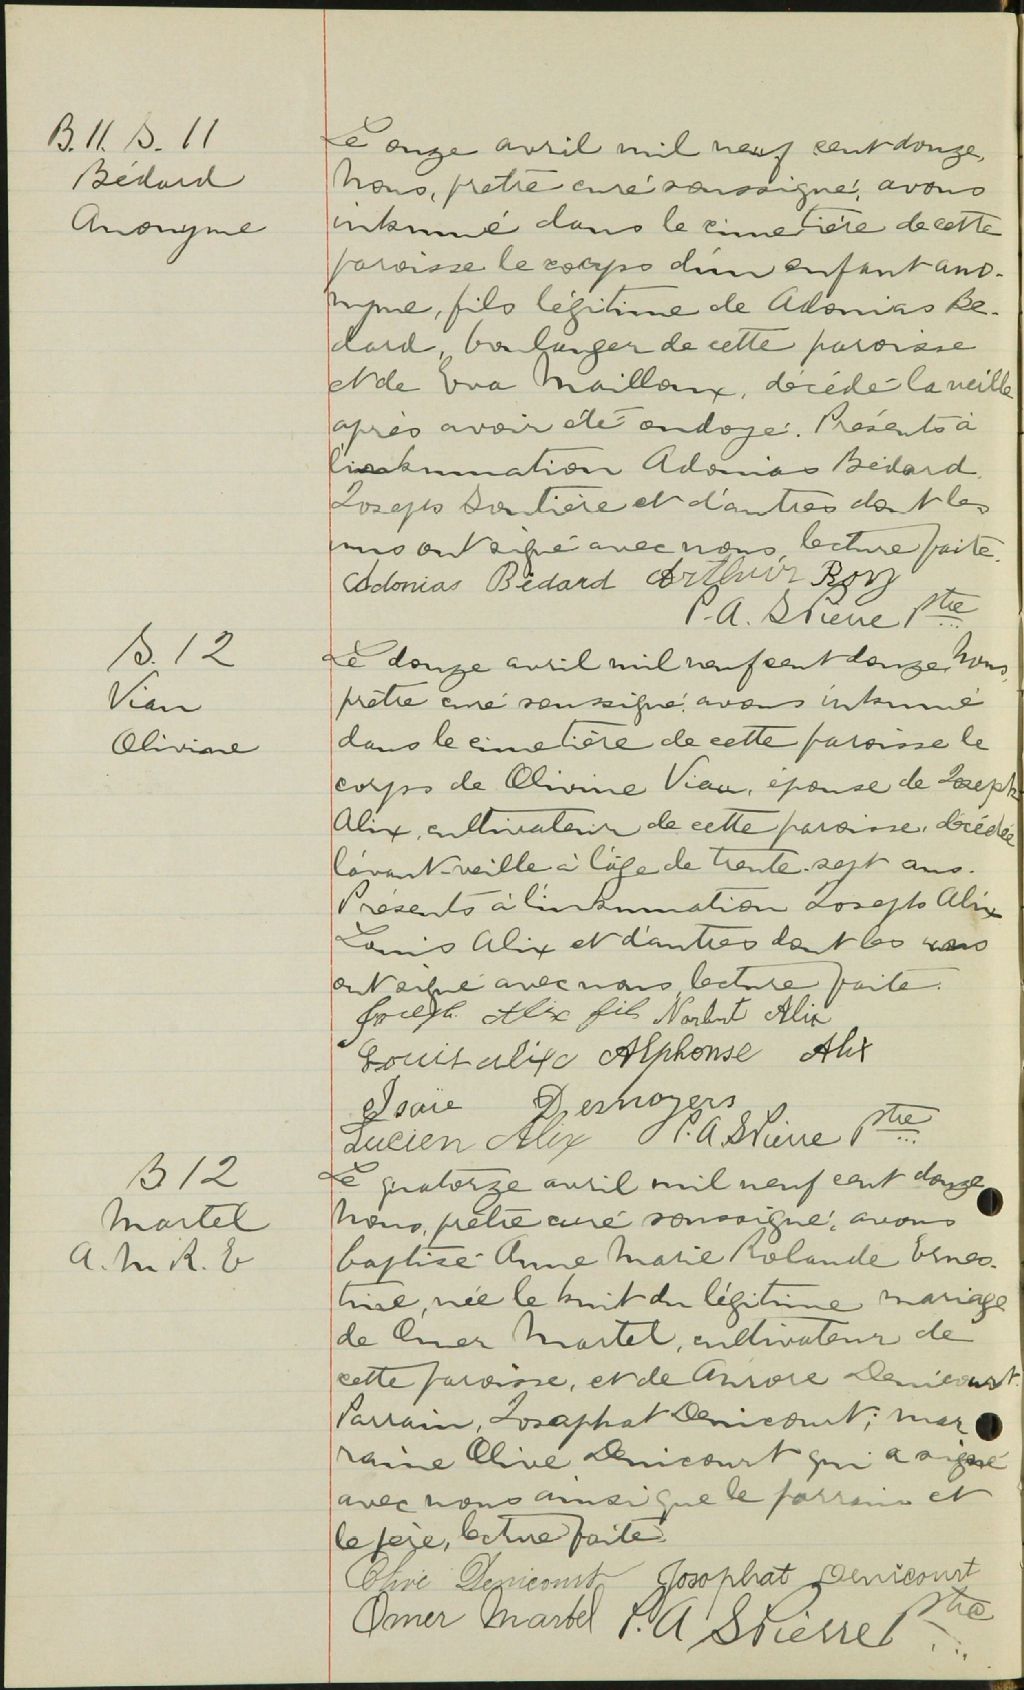 B. 11. S. 11
Bédard
Anonyme
Le onze avril mil neuf cent douze,
Nous, prêtre curé soussigné, avons
inhumé dans le cimetière de cette
paroisse le corps d'un enfant ano-
nyme, fils légitime de Adonias Bé-
dard, boulanger de cette paroisse
et de Eva Mailloux, décédé la veille
après avoir été ondoyé. Présents à
l'inhumation Adonias Bédard
Joseph Soutière et d'autres dont les
uns ont signé avec nous, lecture faite.
Adonias Bédard Arthur Roy
P. A. St Pierre Ptre
S. 12
Viau
Olivine
Le douze avril mil neuf cent douze, Nous,
prêtre curé soussigné, avons inhumé
dans le cimetière de cette paroisse le
corps de Olivine Viau, épouse de Joseph
Alix, cultivateur de cette paroisse, décédée
l'avant-veille à l'âge de trente-sept ans.
Présents à l'inhumation Joseph Alix
Louis Alix et d'autres dont les uns
ont signé avec nous, lecture faite.
Joseph Alix fils Norbert Alix
Louis Alix Alphonse Alix
Isaïe Desnoyers
Lucien Alix P. A. St Pierre Ptre
B 12
Martel
A. M. R. E
Le quatorze avril mil neuf cent douze
Nous, prêtre curé soussigné, avons
baptisé Anne Marie Rolande Ernes-
tine, née le huit du légitime mariage
de Omer Martel, cultivateur de
cette paroisse, et de Aurore Denicourt.
Parrain, Josaphat Denicourt; mar
raine Olive Denicourt qui a signé
avec nous ainsi que le parrain et
le père, lecture faite.
Olive Denicourt Josophat Denicourt
Omer Martel P. A St Pierre Ptre